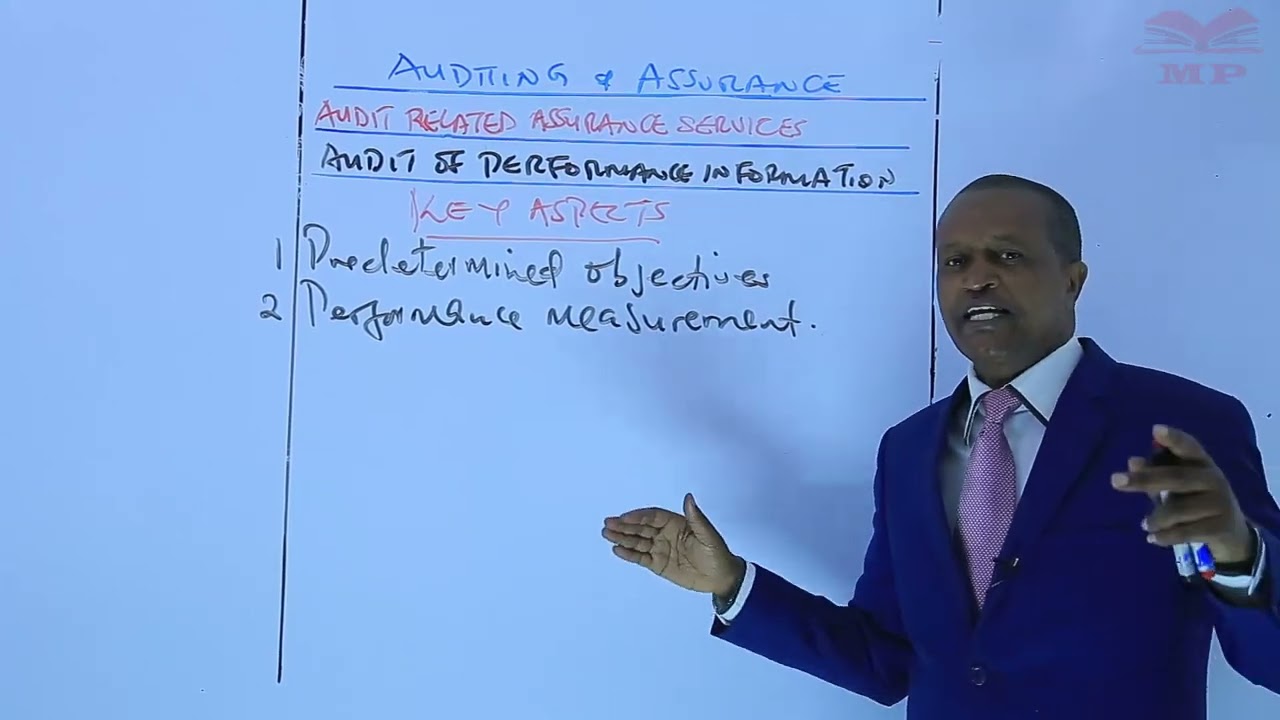 AUDITING & ASSURANCE
AUDIT RELATED ASSURANCE SERVICES
AUDIT OF PERFORMANCE INFORMATION
KEY ASPECTS
1 Predetermined objectives
2 Performance measurement.
MP